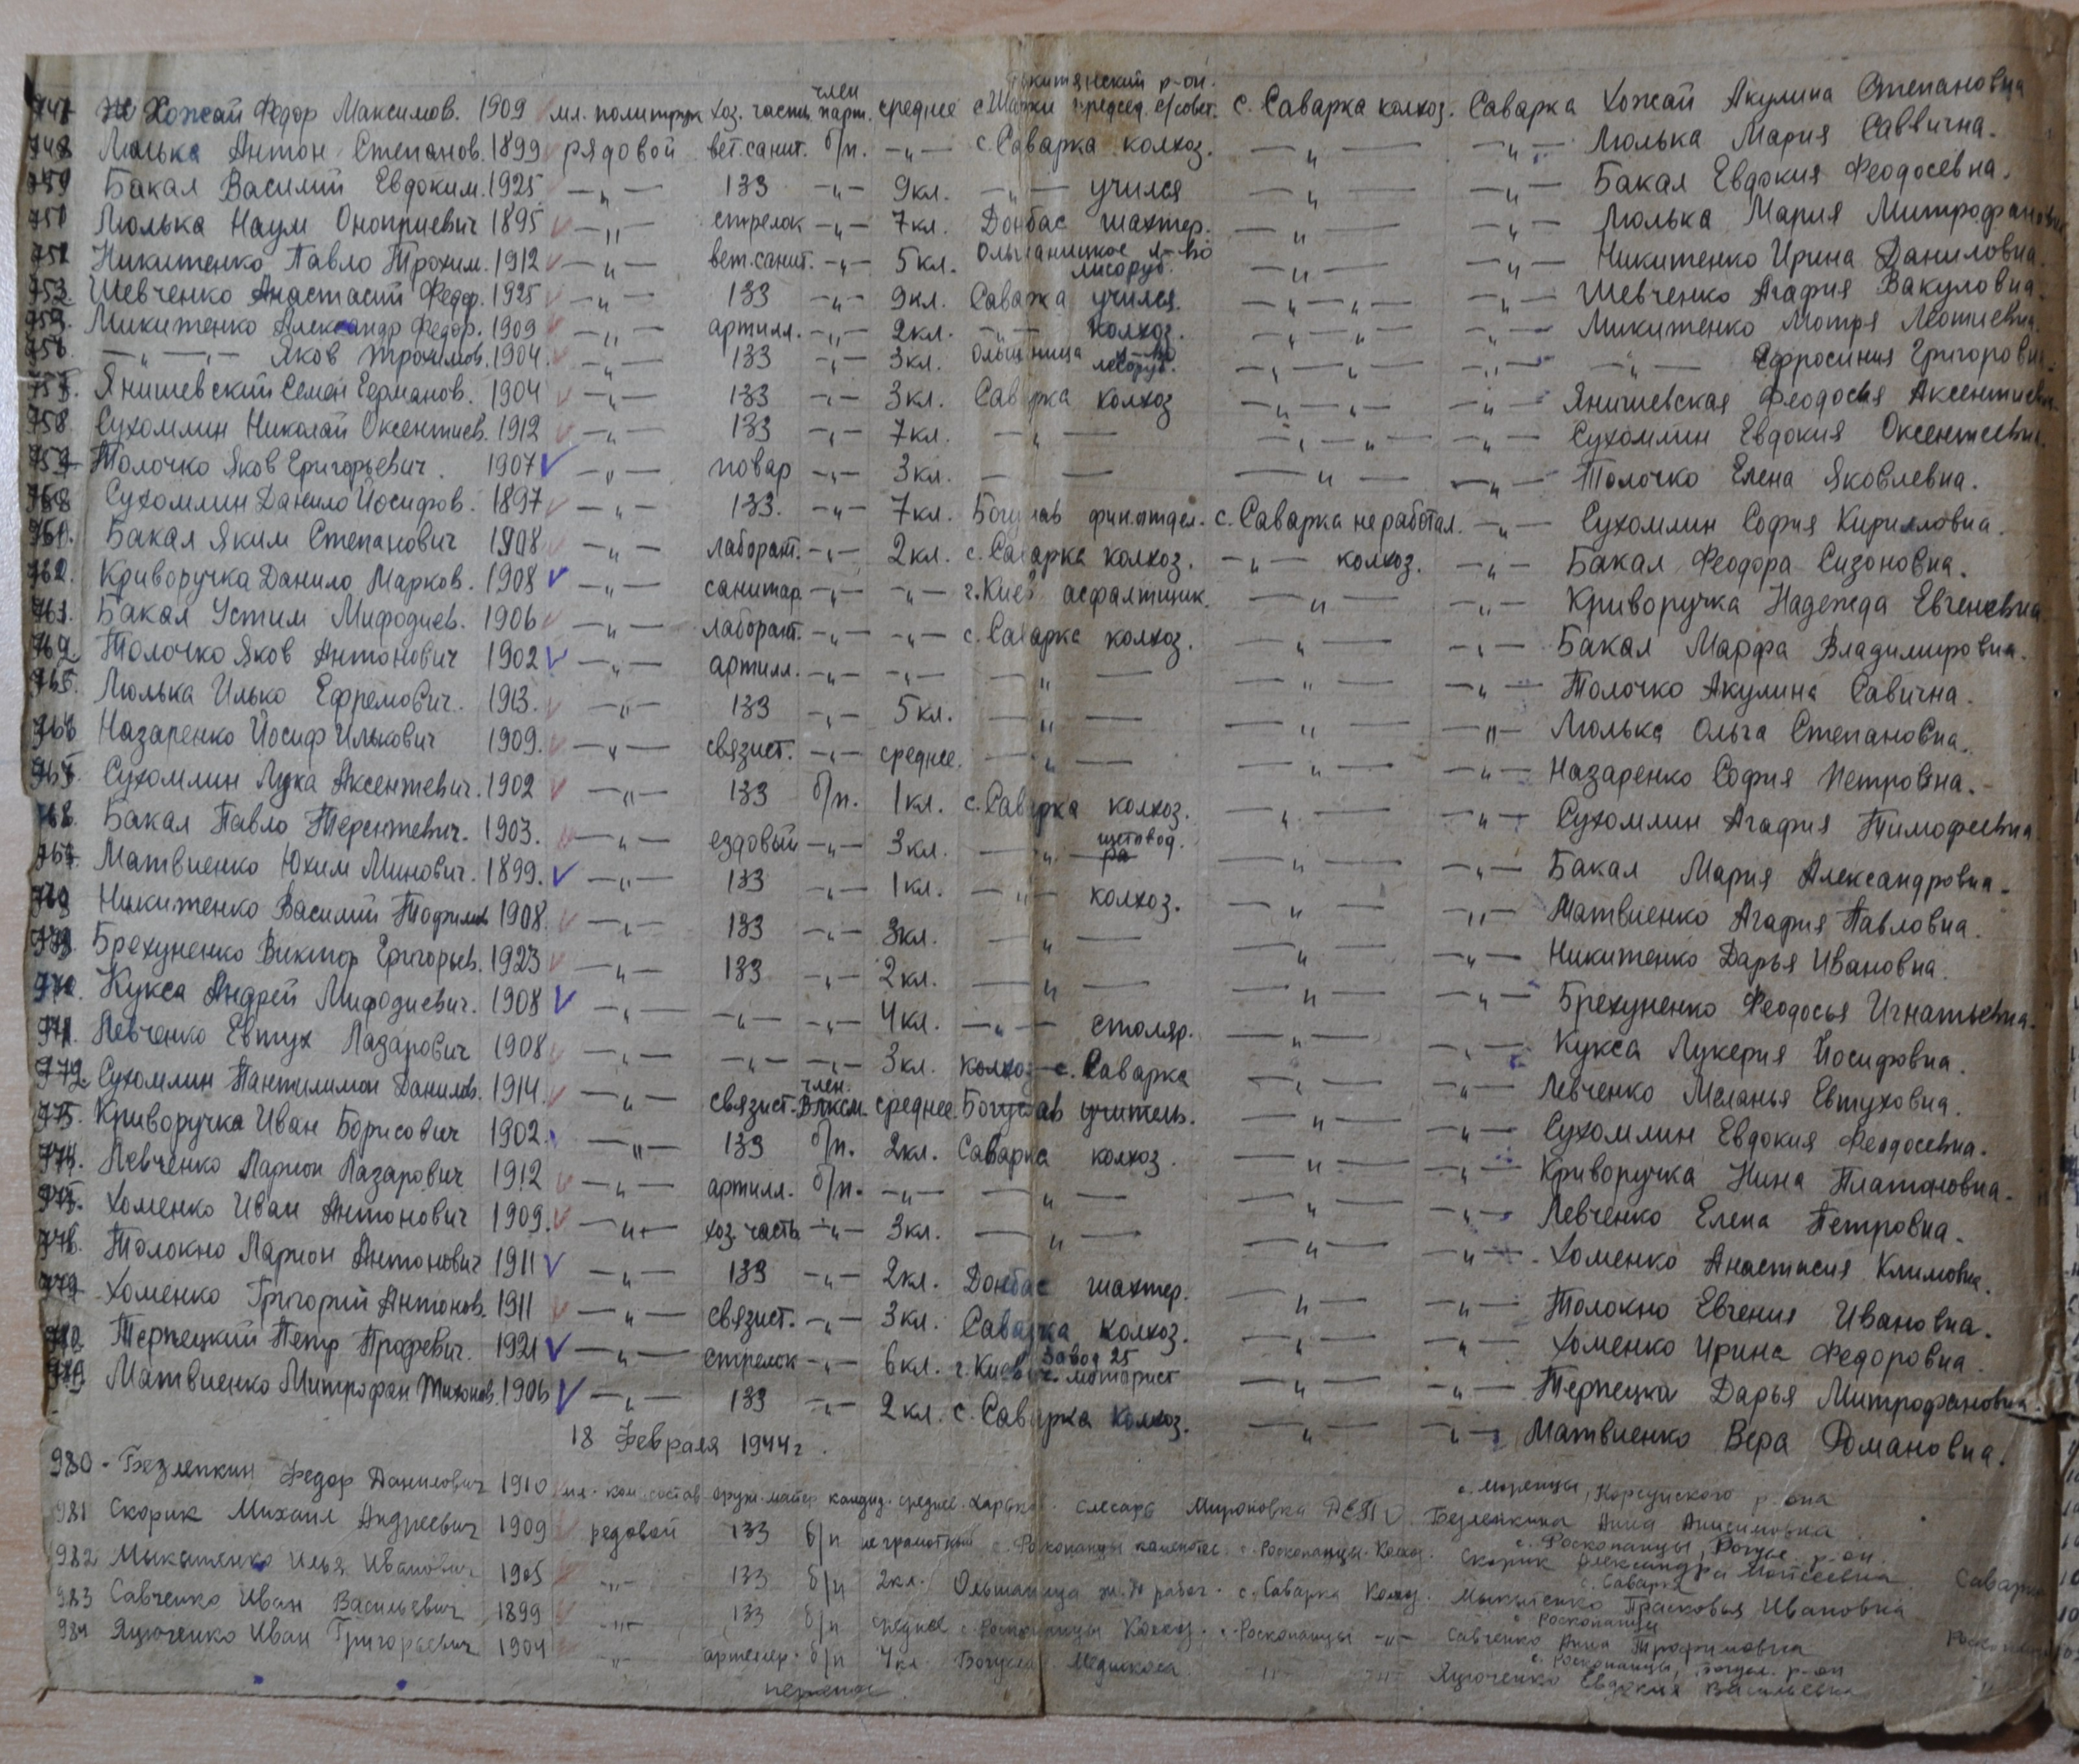 Хожай Федор Максимов. 1909 мл. политрук хоз. часть член парт. среднее с. Саварка колхоз. Саварка Хожай Акулина Степановна
748 Люлька Антон Степанов. 1899 рядовой вет. санит. б/п. -„- с. Саварка колхоз. -„- -„- Люлька Мария Саввична.
Бакал Василий Евдоким. 1925 -„- 133 -„- 9кл. -„- учился -„- -„- Бакал Евдокия Феодосевна.
Люлька Наум Оноприевич 1895 -„- стрелок -„- 7кл. Донбас шахтер. -„- -„- Люлька Мария Митрофановна
Никитенко Павло Трохим. 1912 -„- вет. санит. -„- 5кл. лисоруб. -„- -„- Никитенко Ирина Даниловна.
Шевченко Анастасий Федор. 1925 -„- 133 -„- 9кл. Саварка учился. -„-„- -„- Шевченко Агафия Вакуловна.
Микитенко Александр Федор. 1909 -„- артилл. -„- 2кл. -„- колхоз. -„-„- -„- Микитенко Мотря Леонтиевна.
-„- -„- Яков Трохимов. 1904. -„- 133 -„- 3кл. лесоруб. -„-„- -„- -„- Ефросиния Григоровна.
Янишевский Семен Германов. 1904 -„- 133 -„- 3кл. Саварка колхоз -„-„- -„- Янишевская Феодосья Аксентиевна
758 Сухомлин Николай Оксентиев. 1912 -„- 133 -„- 7кл. -„- -„-„- -„- Сухомлин Евдокия Оксентиевна.
Толочко Яков Григорьевич. 1907 -„- повар -„- 3кл. -„- -„- -„- Толочко Елена Яковлевна.
Сухомлин Данило Йосифов. 1897 -„- 133. -„- 7кл. Богуслав фин.отдел. с. Саварка не работал. -„- Сухомлин София Кирилловна.
761. Бакал Яким Степанович 1908 -„- лаборат. -„- 2кл. с. Саварка колхоз. -„- колхоз. -„- Бакал Феодора Сизоновна.
762. Криворучка Данило Марков. 1908 -„- санитар -„- -„- г. Киев асфалтщик. -„- -„- Криворучка Надежда Евгеневна
763. Бакал Устим Мифодиев. 1906 -„- лаборат. -„- -„- с. Саварка колхоз. -„- -„- Бакал Марфа Владимировна.
Толочко Яков Антонович 1902 -„- артилл. -„- -„- -„- -„- -„- Толочко Акулина Савична.
Люлька Илько Ефремович. 1913. -„- 133 -„- 5кл. -„- -„- -„- Люлька Ольга Степановна.
Назаренко Йосиф Илькович 1909. -„- связист. -„- среднее. -„- -„- -„- Назаренко София Петровна.
Сухомлин Лука Аксентевич. 1902 -„- 133 б/п. 1кл. с. Саварка колхоз. -„- -„- Сухомлин Агафия Тимофеевна
768. Бакал Павло Терентевич. 1903. -„- ездовый -„- 3кл. -„- щетовод. -„- -„- Бакал Мария Александровна.
Матвиенко Юхим Минович. 1899. -„- 133 -„- 1кл. -„- колхоз. -„- -„- Матвиенко Агафия Павловна.
Никитенко Василий 1908. -„- 133 -„- 3кл. -„- -„- -„- Никитенко Дарья Ивановна.
Брехуненко Виктор Григорьев. 1923 -„- 133 -„- 2кл. -„- -„- -„- Брехуненко Феодосья Игнатьевна.
Кукса Андрей Мифодиевич. 1908 -„- -„- -„- 4кл. -„- столяр. -„- -„- Кукса Лукерия Йосифовна.
971. Левченко Евтух Лазарович 1908 -„- -„- -„- 3кл. колхоз с. Саварка -„- -„- Левченко Меланья Евтуховна.
972 Сухомлин Пантилимон Данилов. 1914. -„- связист. член. ВЛКСМ среднее. Богуслав учитель. -„- -„- Сухомлин Евдокия Феодосевна.
Криворучка Иван Борисович 1902. -„- 133 б/п. 2кл. Саварка колхоз. -„- -„- Криворучка Нина Платоновна.
Левченко Ларион Лазарович 1912 -„- артилл. б/п. -„- -„- -„- -„- Левченко Елена Петровна.
Хоменко Иван Антонович 1909. -„- хоз. часть -„- 3кл. -„- -„- -„- Хоменко Анастасия Климовна.
Толокно Ларион Антонович 1911 -„- 133 -„- 2кл. Донбас шахтер. -„- -„- Толокно Евгения Ивановна.
Хоменко Григорий Антонов. 1911 -„- связист. -„- 3кл. Саварка колхоз. -„- -„- Хоменко Ирина Федоровна.
Терпецкий Петр Профевич. 1921 -„- стрелок -„- 6кл. г. Киев завод 25 -„- -„- Терпецка Дарья Митрофановна.
Матвиенко Митрофан Тихонов. 1906 -„- 133 -„- 2кл. с. Саварка колхоз. -„- -„- Матвиенко Вера Романовна.
18 Февраля 1944г.
980 - Безлепкин Федор Данилович 1910 мл. ком. состав кандид. среднее слесарь Мироновка Корсунского р-она Безлепкина Анна Анисимовна
981 Скорик Михаил Андреевич 1909 редовой 133 б/п не грамотный с. Роскопанцы с. Роскопанцы Колхоз. с. Роскопанцы, р-он. Скорик Александра Мойсеевна
982 Мыкытенко Илья Иванович 1905 -„- 133 б/п 2кл. Ольшаница с. Саварка Колхоз. с. Саварка Мыкытенко Прасковья Ивановна Саварка
983 Савченко Иван Васильевич 1899 -„- 133 б/п среднее с. Роскопанцы Колхоз. с. Роскопанцы -„- с. Роскопанцы Савченко Анна Трофимовна
984 Яцюченко Иван Григорьевич 1904 -„- б/п 4кл. Богуслав -„- -„- с. Роскопанцы, Богусл. р-он Яцюченко Евдокия Васильевна